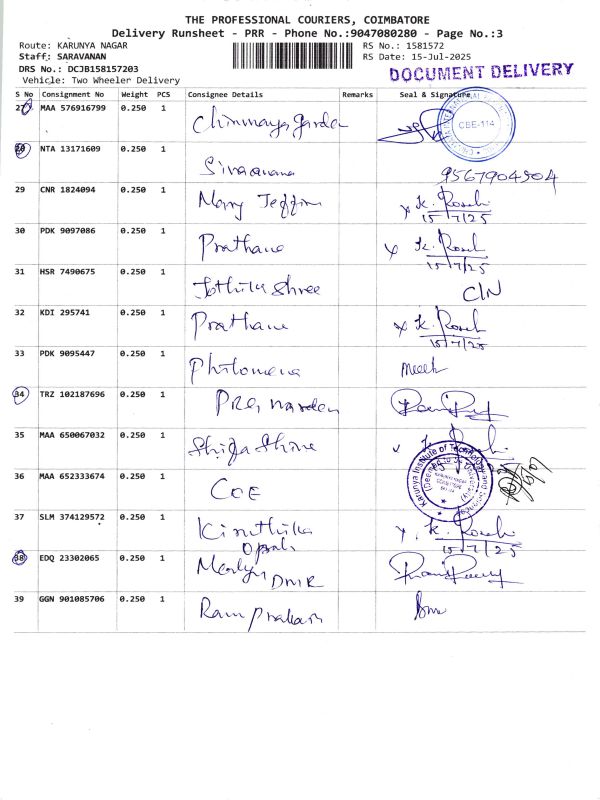 THE PROFESSIONAL COURIERS, COIMBATORE
Delivery Runsheet - PRR - Phone No.:9047080280 - Page No.:3
Route: KARUNYA NAGAR
RS No.: 1581572
Staff: SARAVANAN
RS Date: 15-Jul-2025
DRS No.: DCJB158157203
DOCUMENT DELIVERY
Vehicle: Two Wheeler Delivery
S No Consignment No Weight PCS Consignee Details Remarks Seal & Signature
27 MAA 576916799 0.250 1 Chinmaya garden CBE-114
28 NTA 13171609 0.250 1 9567904504
29 CNR 1824094 0.250 1 x K. 15/7/25
30 PDK 9097086 0.250 1 Prathane x K. 15/7/25
31 HSR 7490675 0.250 1 Jothika Shree
32 KDI 295741 0.250 1 Prathane x K. 15/7/25
33 PDK 9095447 0.250 1 Philomena
34 TRZ 102187696 0.250 1
35 MAA 650067032 0.250 1 K.
36 MAA 652333674 0.250 1 COE Karunya Institute of Technology and Sciences
37 SLM 374129572 0.250 1 Kiruthika x K. 15/7/25
38 EDQ 23302065 0.250 1
39 GGN 901085706 0.250 1 Ram prakash